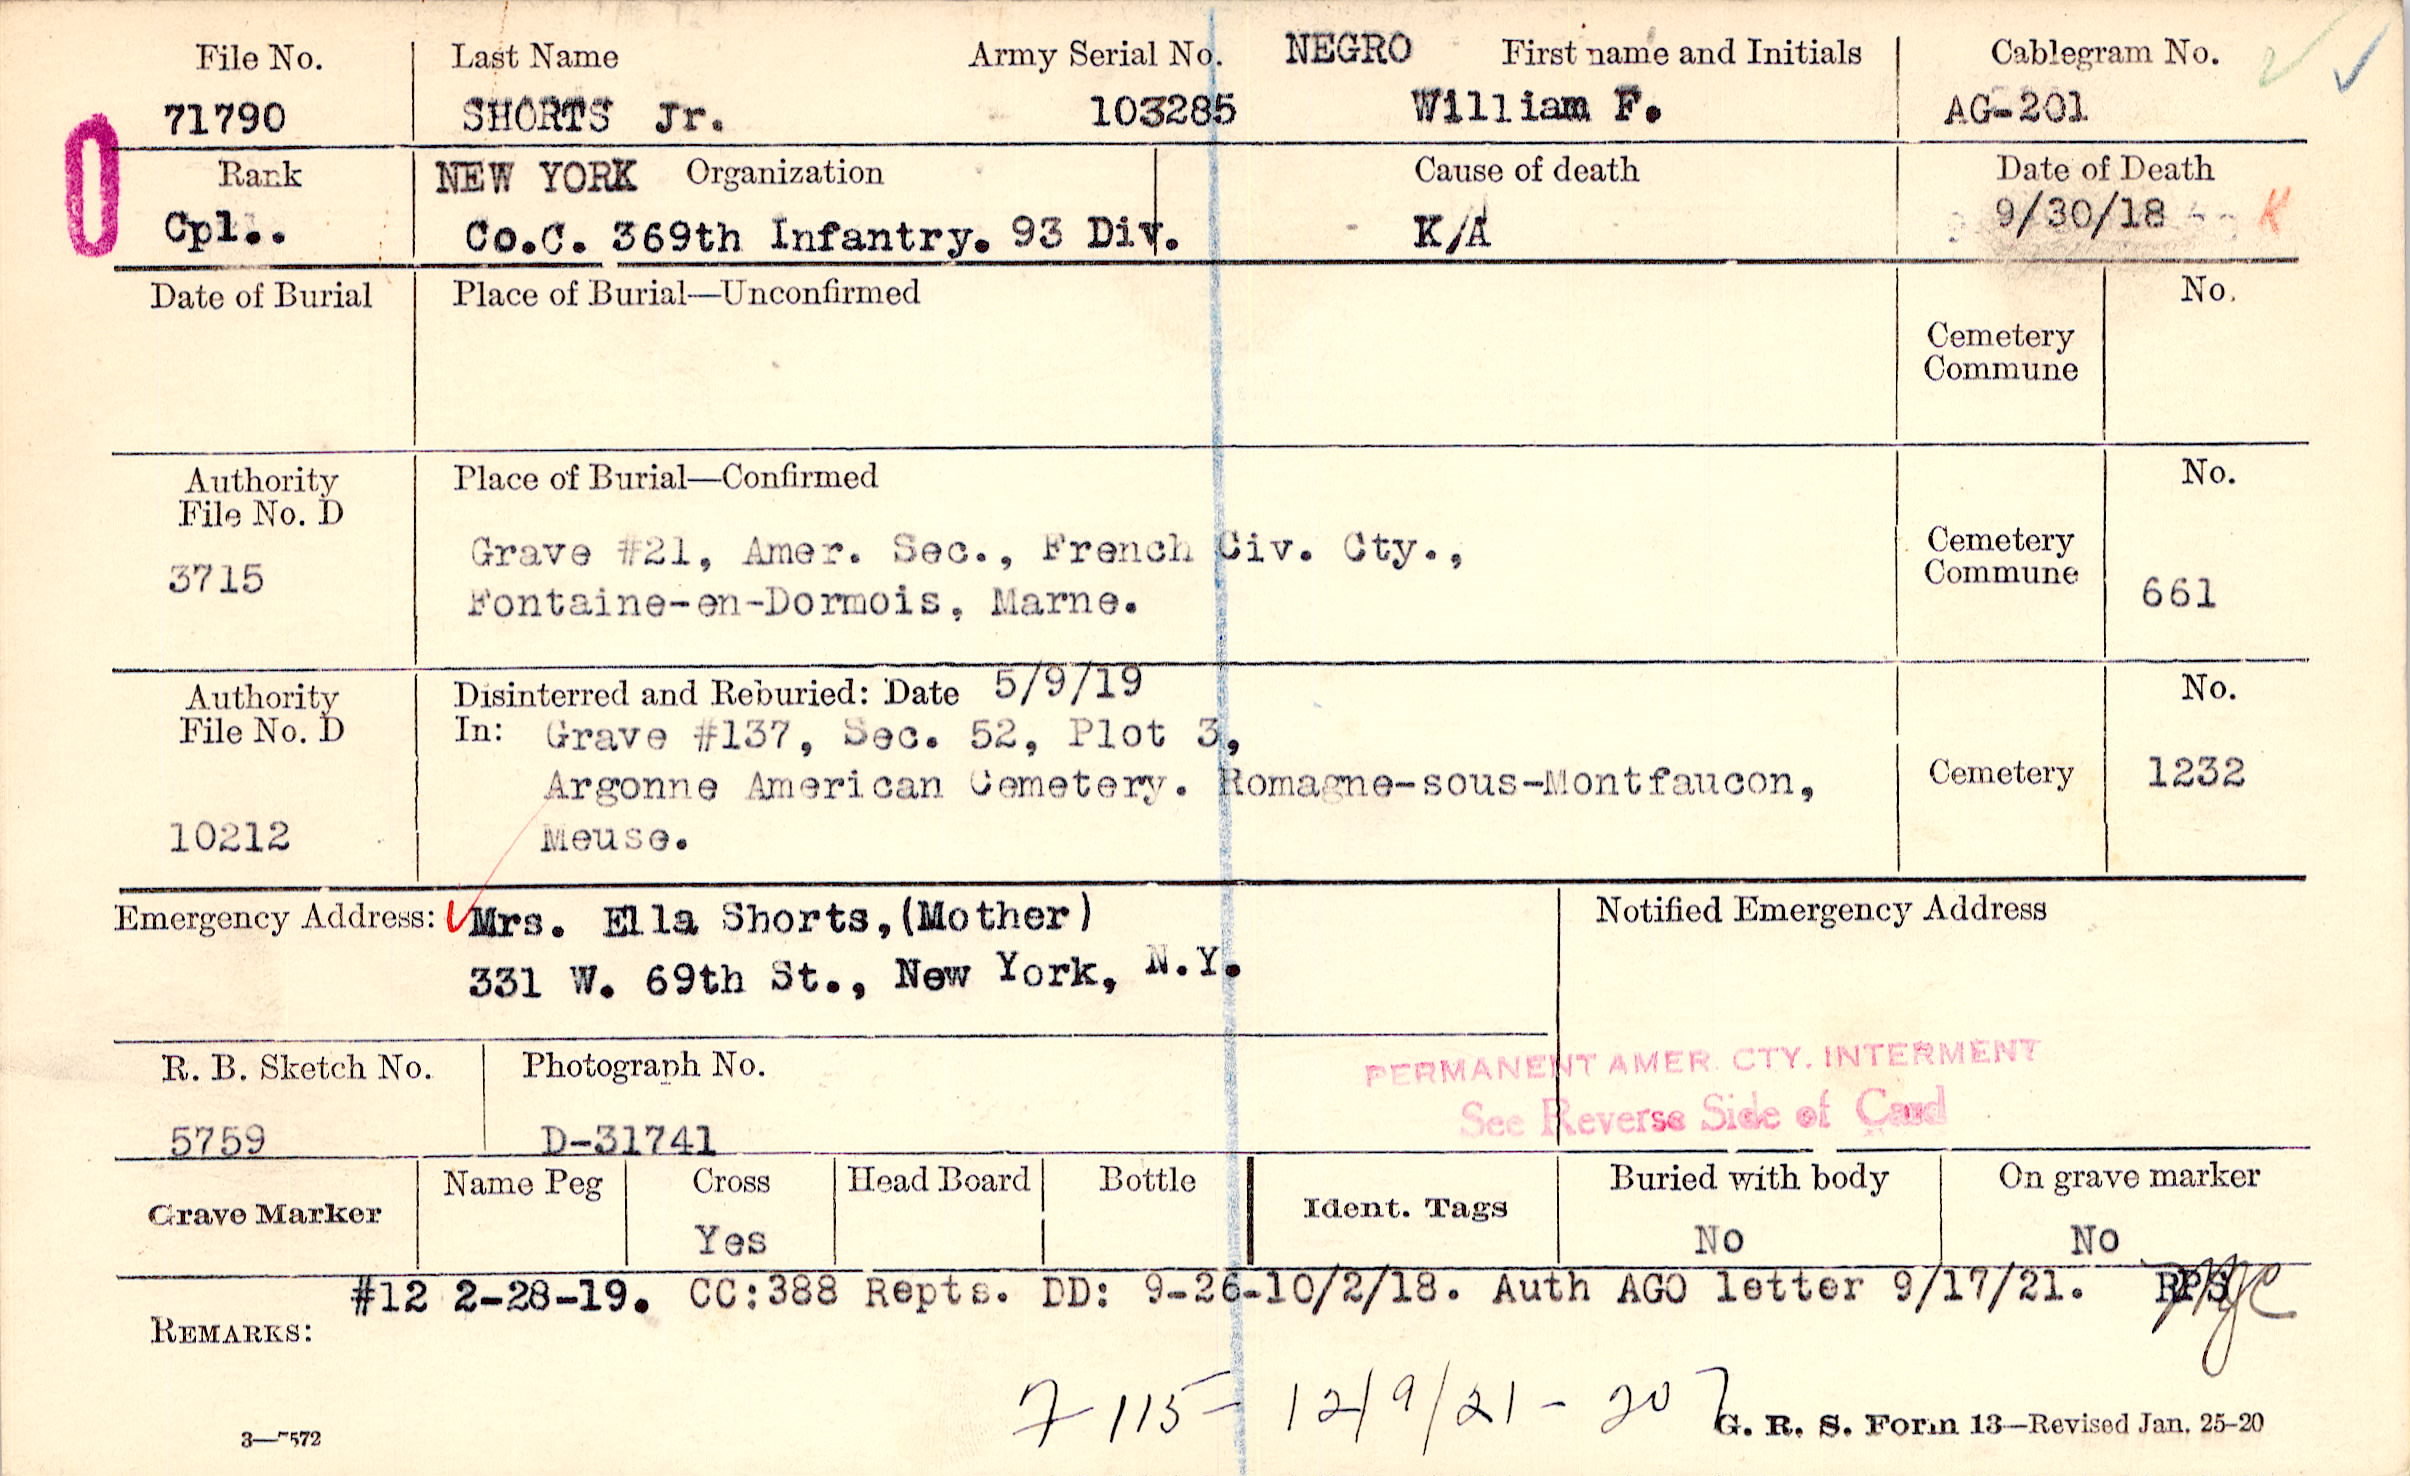 File No. Last Name Army Serial No. NEGRO First name and Initials Cablegram No.
71790 SHORTS Jr. 103285 William F. AG-201
Rank NEW YORK Organization Cause of death Date of Death
Cpl.. Co.C. 369th Infantry. 93 Div. K/A 9/30/18 K
Date of Burial Place of Burial—Unconfirmed No.
Cemetery
Commune
Authority Place of Burial—Confirmed No.
File No. D
Grave #21, Amer. Sec., French Civ. Cty., Cemetery
3715 Commune
Fontaine-en-Dormois, Marne. 661
Authority Disinterred and Reburied: Date 5/9/19 No.
File No. D In: Grave #137, Sec. 52, Plot 3,
Argonne American Cemetery. Romagne-sous-Montfaucon, Cemetery 1232
10212 Meuse.
Emergency Address: Mrs. Ella Shorts,(Mother) Notified Emergency Address
331 W. 69th St., New York, N.Y.
R. B. Sketch No. Photograph No. PERMANENT AMER. CTY. INTERMENT
See Reverse Side of Card
5759 D-31741
Grave Marker Name Peg Cross Head Board Bottle Ident. Tags Buried with body On grave marker
Yes No No
#12 2-28-19. CC:388 Repts. DD: 9-26-10/2/18. Auth AGO letter 9/17/21. RPS
REMARKS:
7115- 12/9/21 - 207
3—7572 G. R. S. Form 13—Revised Jan. 25-20